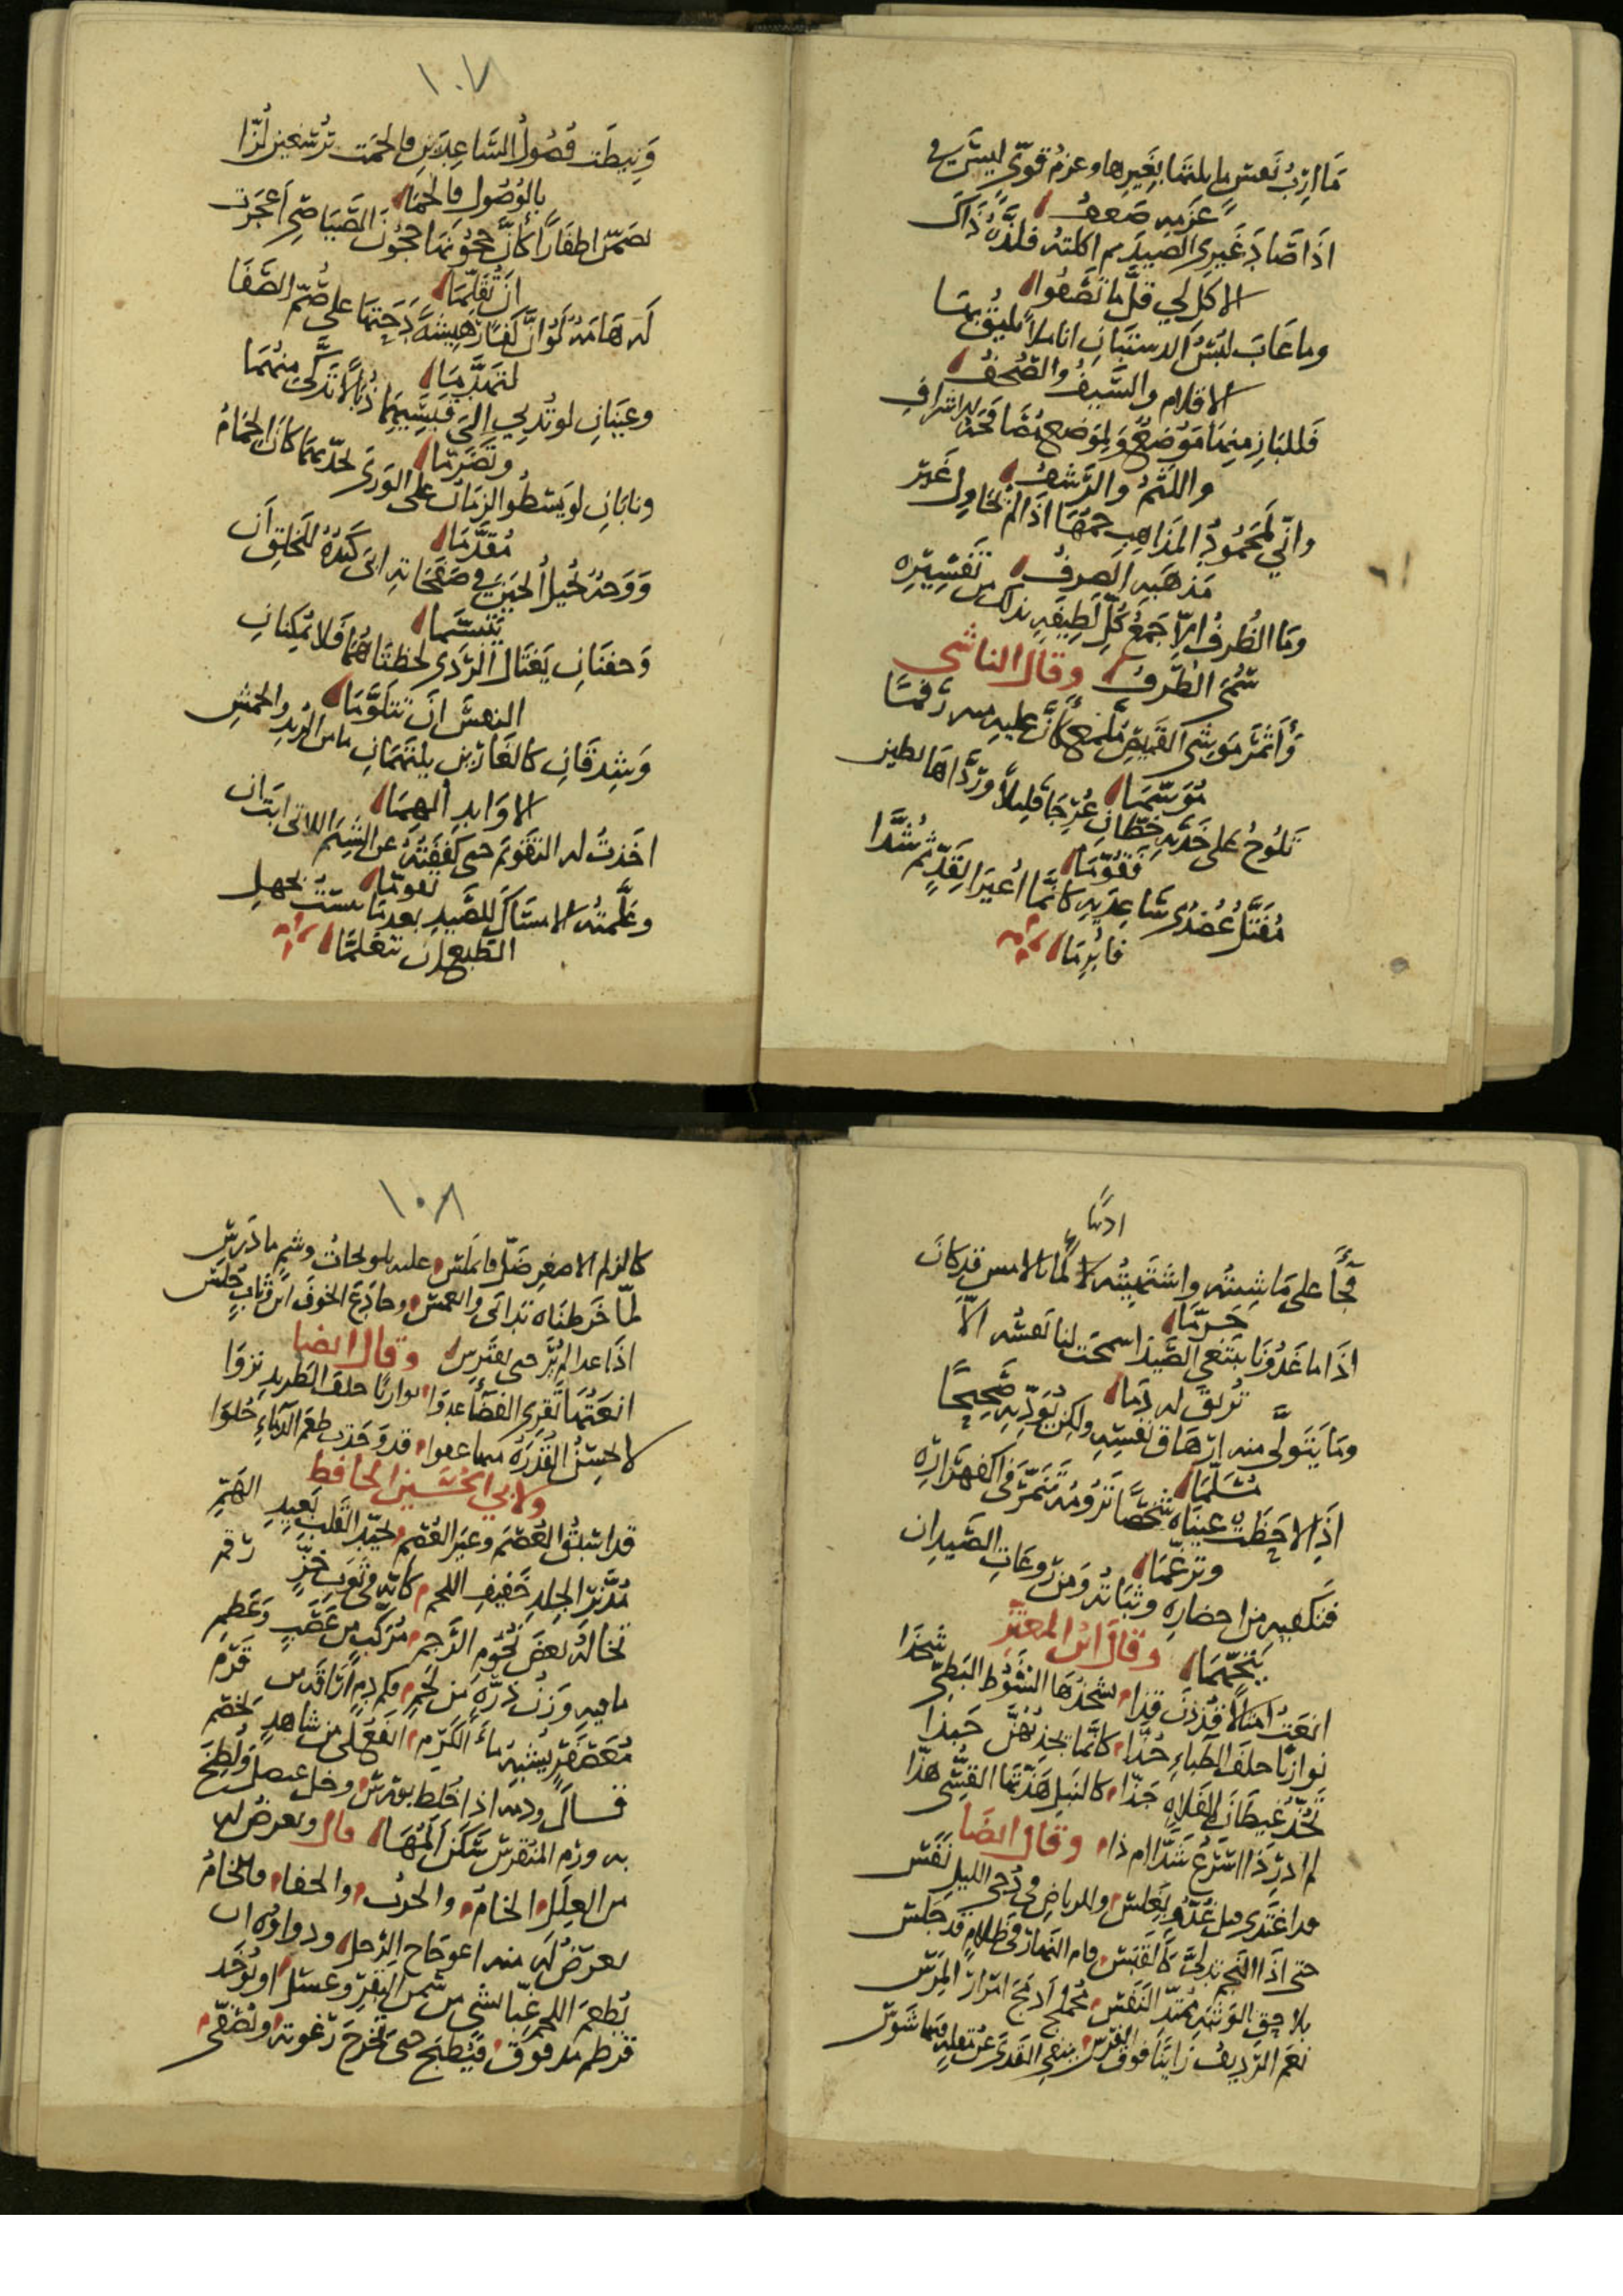 مَا اَرَبُ نَفسٍ لم ابلتها بغيرها وعزم قويّ ليس في
عزمه ضعف
اذا صاد غيري الصيد ثم اكلته فلذة ذاك
الاكل لي قلّ ما تصفوا
وما عاب لبس الدستبان اناملاً يليق بها
الاقلام والسيف والصحف
فللباز منها موضع ولموضع
واللثم والرشف
وانّي لمحمود المذاهب جمّها اذا لم يحاول غير
مذهبه الصرف
وما الظرف الا جمع كل لطيفه بذلك من تفسيره
سُمّي الظرف وقال الناشي
وَأَنمَرَ مَوشيّ القميص ملمع كأنّ عليه منه رقمًا
موسّمَا
تلوح على خدّيه خطّان عُرّجا قليلاً وردّاها لطيز
فقوّما
مُفَتّل عضدي ساعديه كأنما اعيرا بقدٍّ ثم شُدّا
فابرما
١٠٧
وَنيطت فصول الساعدين فالحمت لزّا
بالوصول فالحما
تضمّن اظفارًا كأن حجونها حجون الصياصي اعجزت
ان تقلّما
له هامة لو ان كفًّا رهيشة دحتها على صُمّ الصفا
لتهدّما
وعينان لو تُدلي الى قبسيهما ذبالاً تذكّى منهما
وتضرّما
ونابان لو يسطوا الزمان على الورى بحدّيهما كان الحمام
مُقدّما
وَوَجهٌ يُخيل الحين في صفحاته ابى كيده للخلق ان
يتبسّما
وجفنان يغتال الردى لحظتاهما فلا يمكنان
النهس ان تتلوّما
وشدقان كالغارين يلتهمان ما من الربد والخمش
الاوابد الهما
اخذت له التقويم حتى كففته عن الشيم اللاتي ابت ان
تقوما
وعلّمته الامساك للصيد بعدما يئست بجهل
الطبع ان تتعلما
ادبًا
فجآ على ما شئته واشتهيته لما بالامس قد كان
حرّما
اذا ما غدونا نبتغي الصيد اسمحت لنا نفسه الاّ
تريق له دما
وما يتولّى منه ارهاق نفسه ولكن يؤدّيه صحيحًا
مسلّما
اذا لاحظت عيناه شخصًا ترومه تنمّر في اكفهراره
وترغّما
فتكفيه من احضاره وثباته ومن روعات الصيد ان
يتجّهما وقال ابن المعتز
انعتُ امثالاً قُذذن قذا يشحذها السَّوط البطيّ شحذا
نوازيًا خلف الظباء حُذّا كأنما تجذبهنّ جبذا
تخُدّ غيطان الفلاه خدّا كالنبل هذّتها القسيّ هذّا
لم ادر ذا اسرع شدّا ام ذا وقال ايضا
قد اغتدي قبل غدوّ بغلس وللرياض في دجى الليل نفس
حتى اذا النجم تدلى كالقبس قام النهار في ظلام قد جلس
بلاحق الوثبه ممتدّ النفس محملج ادمج امرار المرس
نعم الرديف رايتا فوق الفرس ينفي القذى عن مقليه فيما شوس
١٠٨
كالزلم الاصفر ضلّ فاملس عليه تلويحات وشم ما درس
لمّا خرطناه تدانى وانغمس وحاذع الخوف ابن وثّاب خلس
اذا عدا لم يُر حتى يفترس وقال ايضا
انعتها تفري الفضآ عدوا نوازيًا خلف الطريد نزوا
لا تحسن القدرة منها عفوا قد وجدت طعم الدماء حلوا
ولابي الحسين الحافظ
قد اسبق العصم وغير العصم بجيّد القلب بعيد الهمّ
مُدنّر الجلد خفيف اللحم كأنه في ثوب خزّ رقم
تخاله بعض نجوم الرجم مُركّب من عصب وعظم
ما فيه وزن ذرّه من لحم فكم دم اراقه من قرم
معصفر يُشبه ماء الكرم انفع لي من شاهد لخصم
قال ودمه اذا خلط بورس وخل عنصل ولطخ
به ورم المنقرس سكن المها قال ويعرض له
من العلل الخام والجرب والحفا فالخام
يعرض له منه اعوجاح الرجل ودواوه ان
يُطعم اللحم غبّا بشي من سمن البقر وعسل او يُوخذ
قرطم مدقوق فيُطبخ حتى تخرج رغوته ويُصفّى